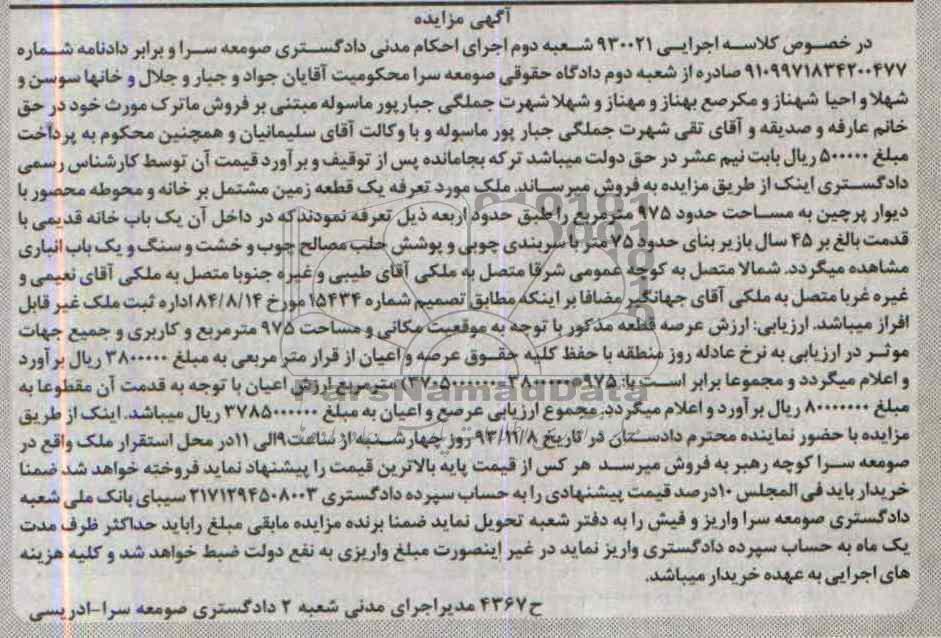 آگهی مزایده
در خصوص کلاسه اجرایی ۹۳۰۰۲۱ شعبه دوم اجرای احکام مدنی دادگستری صومعه سرا و برابر دادنامه شماره
۹۱۰۹۹۷۱۸۳۴۲۰۰۴۷۷ صادره از شعبه دوم دادگاه حقوقی صومعه سرا محکومیت آقایان جواد و جبار و جلال و خانها سوسن و
شهلا و احیا شهناز و مکرصع بهناز و مهناز و شهلا شهرت جملگی جبارپور ماسوله مبتنی بر فروش ماترک مورث خود در حق
خانم عارفه و صدیقه و آقای تقی شهرت جملگی جبار پور ماسوله و با وکالت آقای سلیمانیان و همچنین محکوم به پرداخت
مبلغ ۵۰۰۰۰۰ ریال بابت نیم عشر در حق دولت میباشد ترکه بجامانده پس از توقیف و برآورد قیمت آن توسط کارشناس رسمی
دادگستری اینک از طریق مزایده به فروش میرساند. ملک مورد تعرفه یک قطعه زمین مشتمل بر خانه و محوطه محصور با
دیوار پرچین به مساحت حدود ۹۷۵ مترمربع را طبق حدود اربعه ذیل تعرفه نمودند که در داخل آن یک باب خانه قدیمی با
قدمت بالغ بر ۴۵ سال بازیر بنای حدود ۷۵ متر با سربندی چوبی و پوشش حلب مصالح چوب و خشت و سنگ و یک باب انباری
مشاهده میگردد. شمالا متصل به کوچه عمومی شرقا متصل به ملکی آقای طیبی و غیره جنوبا متصل به ملکی آقای نعیمی و
غیره غربا متصل به ملکی آقای جهانگیر مضافا بر اینکه مطابق تصمیم شماره ۱۵۴۳۴ مورخ ۸۴/۸/۱۴ اداره ثبت ملک غیر قابل
افراز میباشد. ارزیابی: ارزش عرصه قطعه مذکور با توجه به موقعیت مکانی و مساحت ۹۷۵ مترمربع و کاربری و جمیع جهات
موثر در ارزیابی به نرخ عادله روز منطقه با حفظ کلیه حقوق عرصه و اعیان از قرار متر مربعی به مبلغ ۳۸۰۰۰۰۰ ریال برآورد
و اعلام میگردد و مجموعا برابر است با: مترمربع ارزش اعیان با توجه به قدمت آن مقطوعا به
مبلغ ۸۰۰۰۰۰۰۰ ریال برآورد و اعلام میگردد: مجموع ارزیابی عرصع و اعیان به مبلغ ۳۷۸۵۰۰۰۰۰۰ ریال میباشد. اینک از طریق
مزایده با حضور نماینده محترم دادستان در تاریخ ۹۳/۱۱/۸ روز چهارشنبه از ساعت ۹الی ۱۱در محل استقرار ملک واقع در
صومعه سرا کوچه رهبر به فروش میرسد هر کس از قیمت پایه بالاترین قیمت را پیشنهاد نماید فروخته خواهد شد ضمنا
خریدار باید فی المجلس ۱۰درصد قیمت پیشنهادی را به حساب سپرده دادگستری ۲۱۷۱۲۹۴۵۰۸۰۰۳ سیبای بانک ملی شعبه
دادگستری صومعه سرا واریز و فیش را به دفتر شعبه تحویل نماید ضمنا برنده مزایده مابقی مبلغ راباید حداکثر ظرف مدت
یک ماه به حساب سپرده دادگستری واریز نماید در غیر اینصورت مبلغ واریزی به نفع دولت ضبط خواهد شد و کلیه هزینه
های اجرایی به عهده خریدار میباشد.
ح۴۳۶۷ مدیراجرای مدنی شعبه ۲ دادگستری صومعه سرا-ادریسی
ParsNamadData